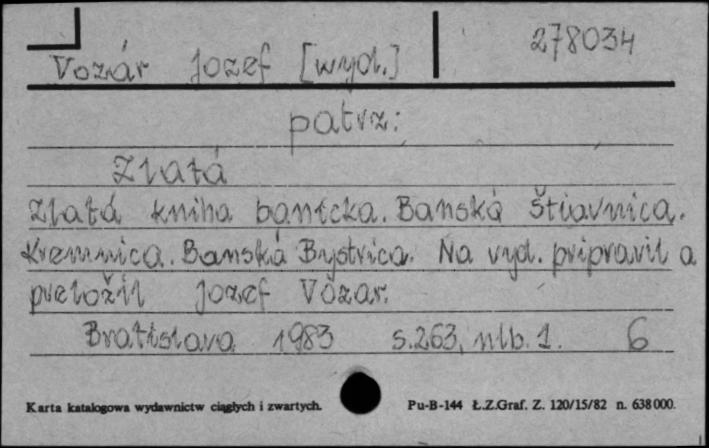 Vozár Jozef [wyd.] 278034
patrz:
Zlatá
Zlatá kniha banícka. Banská Štiavnica.
Kremnica. Banská Bystrica. Na vyd. pripravil a
preložil Jozef Vozár.
Bratislava 1983 s.263, nlb. 1. 6
Karta katalogowa wydawnictw ciągłych i zwartych. Pu-B-144 Ł.Z.Graf. Z. 120/15/82 n. 638000.